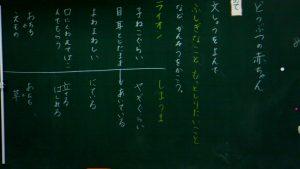 どうぶつの赤ちゃん
文しょうをよんで、
ふしぎなこと、もっとしりたいこと
など かんそうをかこう。
ライオン しまうま
子ねこぐらい やぎぐらい
目 耳 とじたまま あいている
よわよわしい にている
口にくわえてはこんでもらう 立てる はしれる
おちち おちち
えもの 草